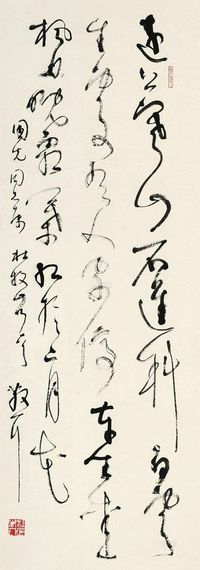 遠上寒山石逕斜白雲
生處有人家停車坐愛
楓林晚霜葉紅於二月花
同志屬 杜牧 散耳